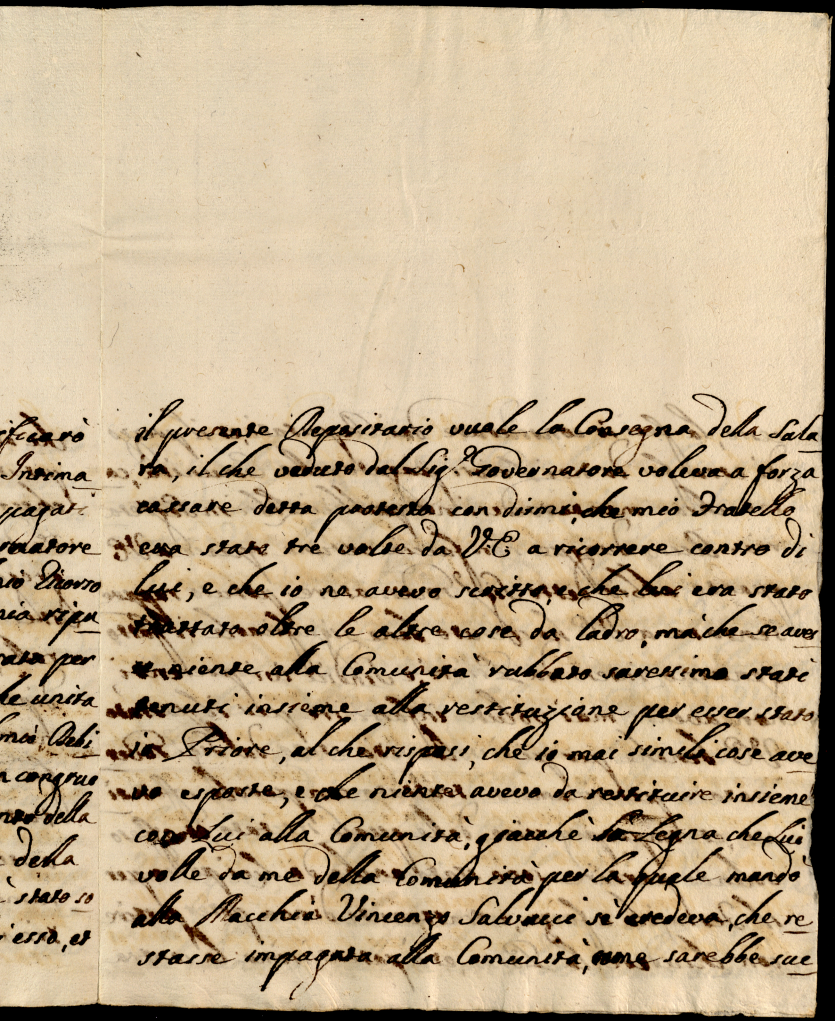 ificarò
Intima
pagati
rnatore
nio Ricorso
nia ripu
rata per
le unita
mei Debi
n congruo
nto della
e della
è stato so
i esso, et
il presente Depositario vuole la Consegna della Sala
ra, il che veduto dal Sig.re Governatore voleva a forza
cassare detta protesta con dirmi, che mio Fratello
era stato tre volte da V.E. a ricorrere contro di
lui, e che io ne avevo scritto, e che lui era stato
trattato oltre le altre cose da ladro, mà che se aves
se niente alla Comunità rubbato saressimo stati
tenuti insieme alla restituzione per esser stato
io Priore, al che risposi, che io mai simili cose ave
vo esposte, e che niente avevo da restituire insieme
con Lui alla Comunità, giacchè la Legna che Lui
volle da me della Comunità per la quale mandò
alla Macchia Vincenzo Salvucci si credeva, che re
stasse impagata alla Comunità, come sarebbe suc